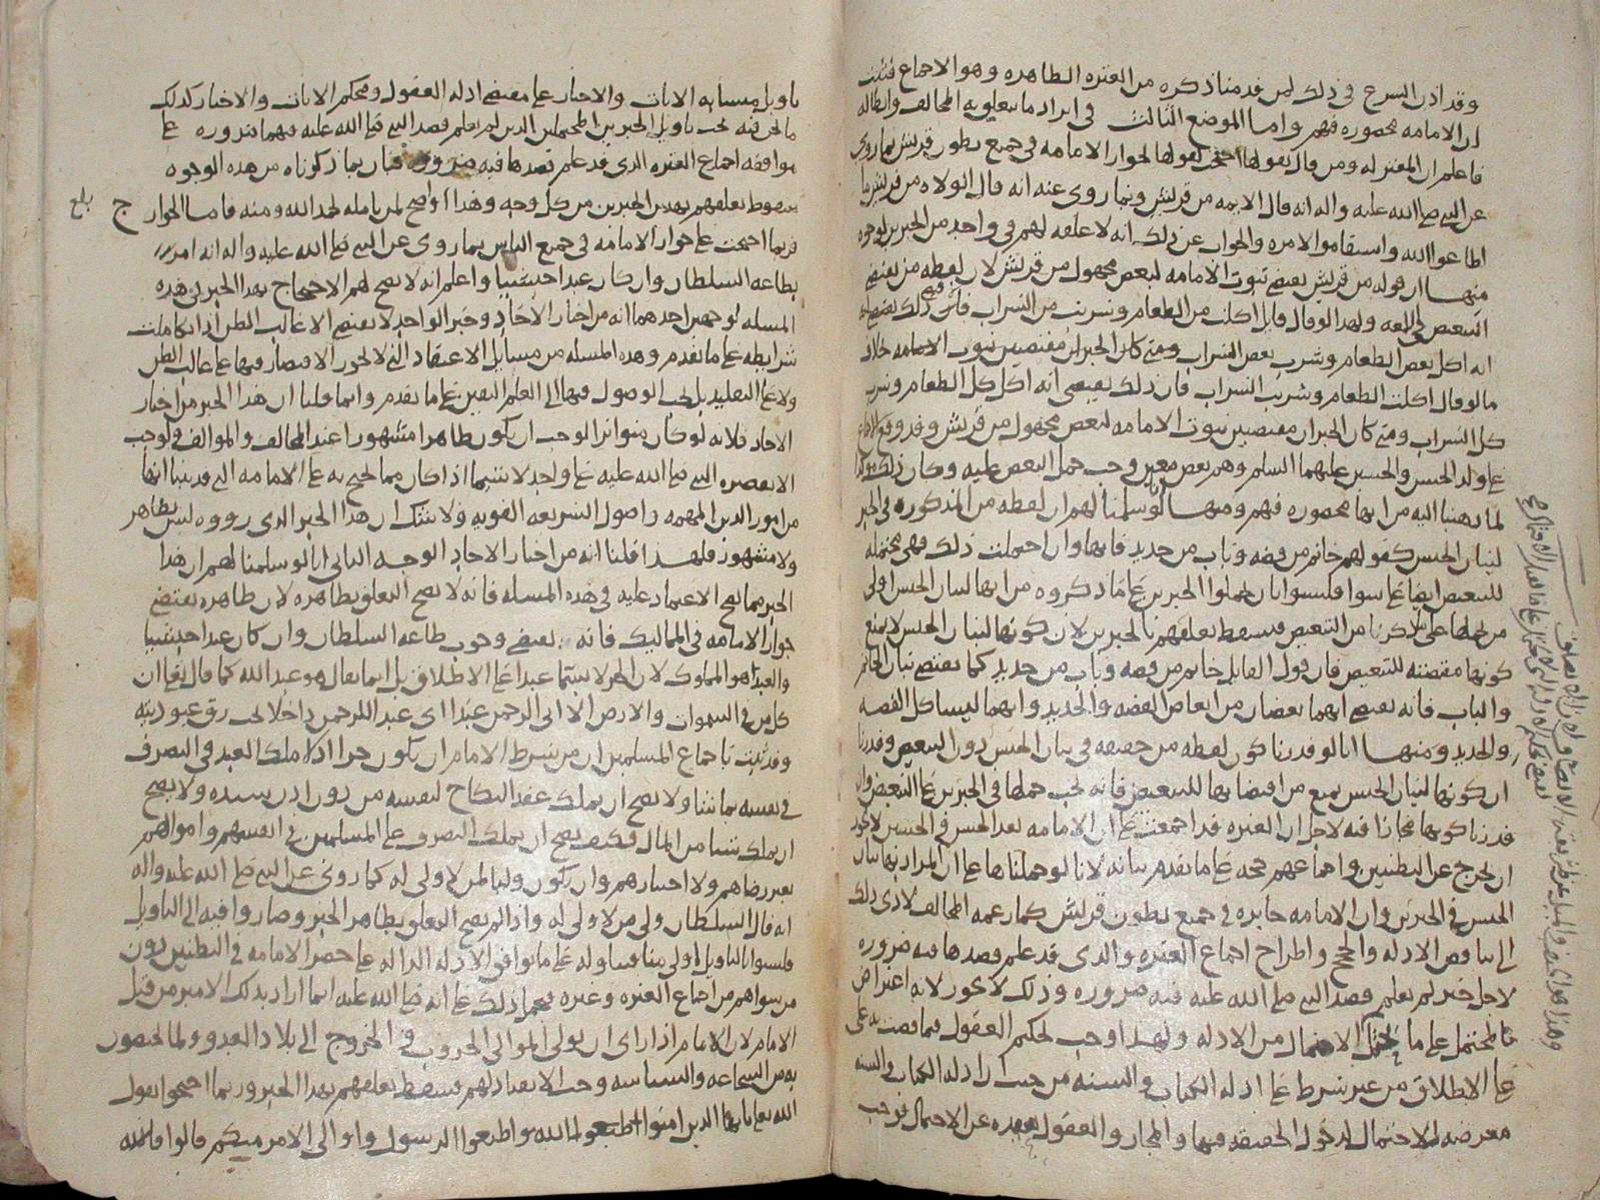 وقد اذن الشرع في ذلك لمن قدمنا ذكره من العترة الطاهرة وهو الاجماع فثبت
ان الامامة محصورة فيهم واما الموضع الثالث في ايراد ما يتعلق به المخالف وابطاله
فاعلم ان المعتزلة ومن قال بقولها احتجت لقولها بجواز الامامة في جميع بطون قريش بما روي
عن النبي صلى الله عليه واله انه قال الايمة من قريش وبما روي عنه انه قال الولاة من قريش ما
اطاعوا الله واستقاموا لامره والجواب عن ذلك انه لا علقة لهم في واحد من الخبرين لوجوه
منها ان قوله من قريش يقتضي ثبوت الامامة لبعض مجهول من قريش لان لفظة من تقتضي
التبعيض في اللغة ولهذا لو قال قايل اكلت من الطعام وشربت من الشراب فان ذلك يقتضي
انه اكل بعض الطعام وشرب بعض الشراب ومتى كان الخبران مقتضيين ثبوت الامامة خلاف
ما لو قال اكلت الطعام وشربت الشراب فان ذلك يقتضي انه اكل كل الطعام وشرب
كل الشراب ومتى كان الخبران مقتضيين ثبوت الامامة لبعض مجهول من قريش وقد وقع الاجماع
على ولد الحسن والحسين عليهما السلم وهم بعض معين وجب حمل البعض عليه وكان ذلك
لما ذهبنا اليه من انها محصورة فيهم ومنها انا لو سلمنا لهم ان لفظة من المذكورة في الخبر
لبيان الجنس كقولهم خاتم من فضة وباب من حديد فانها وان احتملت ذلك فهي محتملة
للتبعيض ايضا على سوا فليسوا بان يحملوا الخبرين على ما ذكروه من انها لبيان الجنس اولى
من حملها على ما ذكرنا من التبعيض فيسقط تعلقهم بالخبرين لان كونها لبيان الجنس لا يمنع
كونها مقتضية للتبعيض فان قول القايل خاتم من فضة وباب من حديد كما يقتضي بيان الخاتم
والباب فانه يقتضي انهما بعضان من ابعاض الفضة والحديد وانهما ليسا كل الفضة
والحديد ومنها انا لو قدرنا كون لفظة من حقيقة في بيان الجنس دون التبعيض وقدرنا
ان كونها لبيان الجنس يمنع من اقتضائها للتبعيض فانه يجب حملها في الخبرين على التبعيض وان
قدرنا كونها مجازا فيه لاجل ان العترة قد اجمعت على ان الامامة بعد الحسن والحسين لا يجوز
ان تخرج عن البطنين واجماعهم حجة على ما تقدم بيانه لانا لو حملناها على ان المراد بها بيان
الجنس في الخبرين وان الامامة جايزة في جميع بطون قريش كما زعمه المخالف لادى ذلك
الى تناقض الادلة والحجج واطراح اجماع العترة والذي قد علم قصدها فيه ضرورة
لاجل خبر لم يعلم قصد النبي صلى الله عليه فيه ضرورة وذلك لا يجوز لانه اعتراض
بالمحتمل على ما لا يحتمل من الادلة ولهذا وجب لحكم العقول فيما قضت به على
على الاطلاق من غير شرط على ادلة الكتاب والسنة من حيث ان ادلة الكتاب والسنة
معرضة للاحتمال لدخول الحقيقة فيها والمجاز والعقول بعيدة عن الاحتمال فوجب
تاويل متشابه الايات والاخبار على مقتضى ادلة العقول ومحكم الايات والاخبار كذلك
ما نحن فيه يجب تاويل الخبرين المحتملين الذين لم يعلم قصد النبي صلى الله عليه فيهما ضرورة على
موافقة اجماع العترة الذي قد علم قصدها فيه ضرورة فبان بما ذكرناه من هذه الوجوه
سقوط تعلقهم بهذين الخبرين من كل وجه وهذا اوضح لمن تامله بحمد الله ومنه فاما الجوارج
بلغ
فربما احتجت على جواز الامامة في جميع الناس بما روي عن النبي صلى الله عليه واله انه امر
بطاعة السلطان وان كان عبدا حبشيا واعلم انه لا يصح لهم الاحتجاج بهذا الخبر في هذه
المسلة لوجهين احدهما انه من اخبار الاحاد وخبر الواحد لا يقتضي الا غالب الظن اذا تكاملت
شرايطه على ما تقدم وهذه المسلة من مسايل الاعتقاد التي لا يجوز الاقتصار فيها على غالب الظن
ولا على التقليد بل يجب الوصول فيها الى العلم اليقين على ما تقدم وانما قلنا ان هذا الخبر من اخبار
الاحاد فلانه لو كان متواترا لوجب ان يكون ظاهرا مشهورا عند المخالف والموالف ولوجب
الا يقصره النبي صلى الله عليه على واحد لا سيما اذا كان مما يحتج به على الامامة التي قد بينا انها
من امور الدين المهمة واصول الشريعة القوية ولا شك ان هذا الخبر الذي رووه ليس بظاهر
ولا مشهور فلهذا قلنا انه من اخبار الاحاد الوجه الثاني انا لو سلمنا لهم ان هذا
الخبر مما يصح الاعتماد عليه في هذه المسلة فانه لا يصح التعلق بظاهره لان ظاهره يقتضي
جواز الامامة في المماليك فانه يقتضي وجوب طاعة السلطان وان كان عبدا حبشيا
والعبد هو المملوك لان الحر لا يسمى عبدا على الاطلاق بل انما يقال هو عبد الله كما قال تعالى ان
كل من في السموات والارض الا اتي الرحمن عبدا اي عبد للرحمن داخلا تحت رق عبوديته
وقد ثبت باجماع المسلمين ان من شرط الامام ان يكون حرا اذ لا يملك العبد في التصرف
في نفسه ما شا ولا يصح ان يملك عقد النكاح لنفسه من دون اذن سيده ولا يصح
ان يملك شيا من المال فكيف يصح ان يملك التصرف على المسلمين في انفسهم واموالهم
بغير رضاهم ولا اختيارهم وان يكون وليا لمن لا ولي له كما روي عن النبي صلى الله عليه واله
انه قال السلطان ولي من لا ولي له واذا لم يصح التعلق بظاهر الخبر وصاروا فيه الى التاويل
فليسوا بالتاويل اولى منا فنتاوله على ما يوافق الادلة الدالة على حصر الامامة في البطنين دون
من سواهم من اجماع العترة وغيره فيحمل ذلك على انه صلى الله عليه انما اراد بذلك الامير من قبل
الامام لان الامام اذا راى ان يولي الموالي الحروب في الخروج الى بلاد العدو ولما يختصون
به من الشجاعة والسياسة وجب الانقياد لهم فسقط تعلقهم بهذا الخبر وربما احتجوا بقول
الله تعالى يا ايها الذين امنوا اطيعوا الله واطيعوا الرسول واولي الامر منكم قالوا فالله